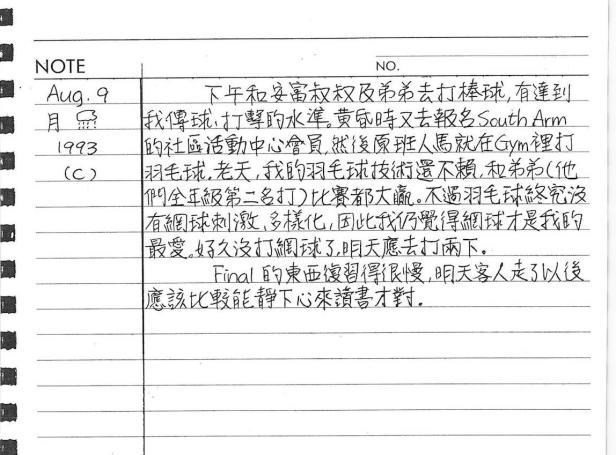 NOTE NO.
Aug. 9 下午和安富叔叔及弟弟去打棒球,有達到
月 我傳球,打擊的水準。黃昏時又去報名South Arm
1993 的社區活動中心會員,然後原班人馬就在Gym裡打
(C) 羽毛球.老天,我的羽毛球技術還不賴,和弟弟(他
們全年級第二名打)比賽都大贏。不過羽毛球終究沒
有網球刺激,多樣化,因此我仍覺得網球才是我的
最愛。好久沒打網球了,明天應去打兩下。
Final 的東西復習得很慢,明天客人走了以後
應該比較能靜下心來讀書才對.